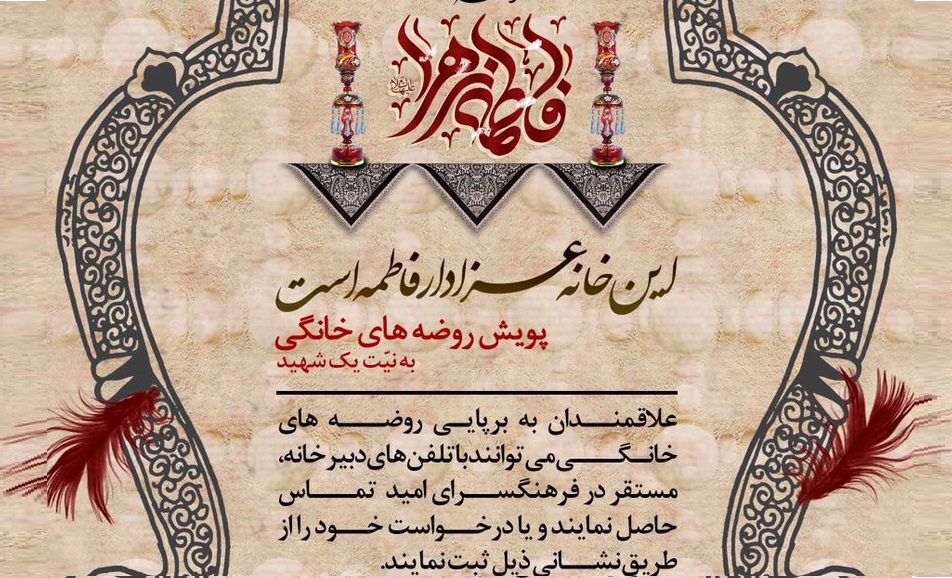 فاطمة الزهرا
این خانه عزادار فاطمه است
پویش روضه های خانگی
به نیّت یک شهید
علاقمندان به برپایی روضه های
خانگی می توانند با تلفن های دبیرخانه،
مستقر در فرهنگسرای امید تماس
حاصل نمایند و یا درخواست خود را از
طریق نشانی ذیل ثبت نمایند.